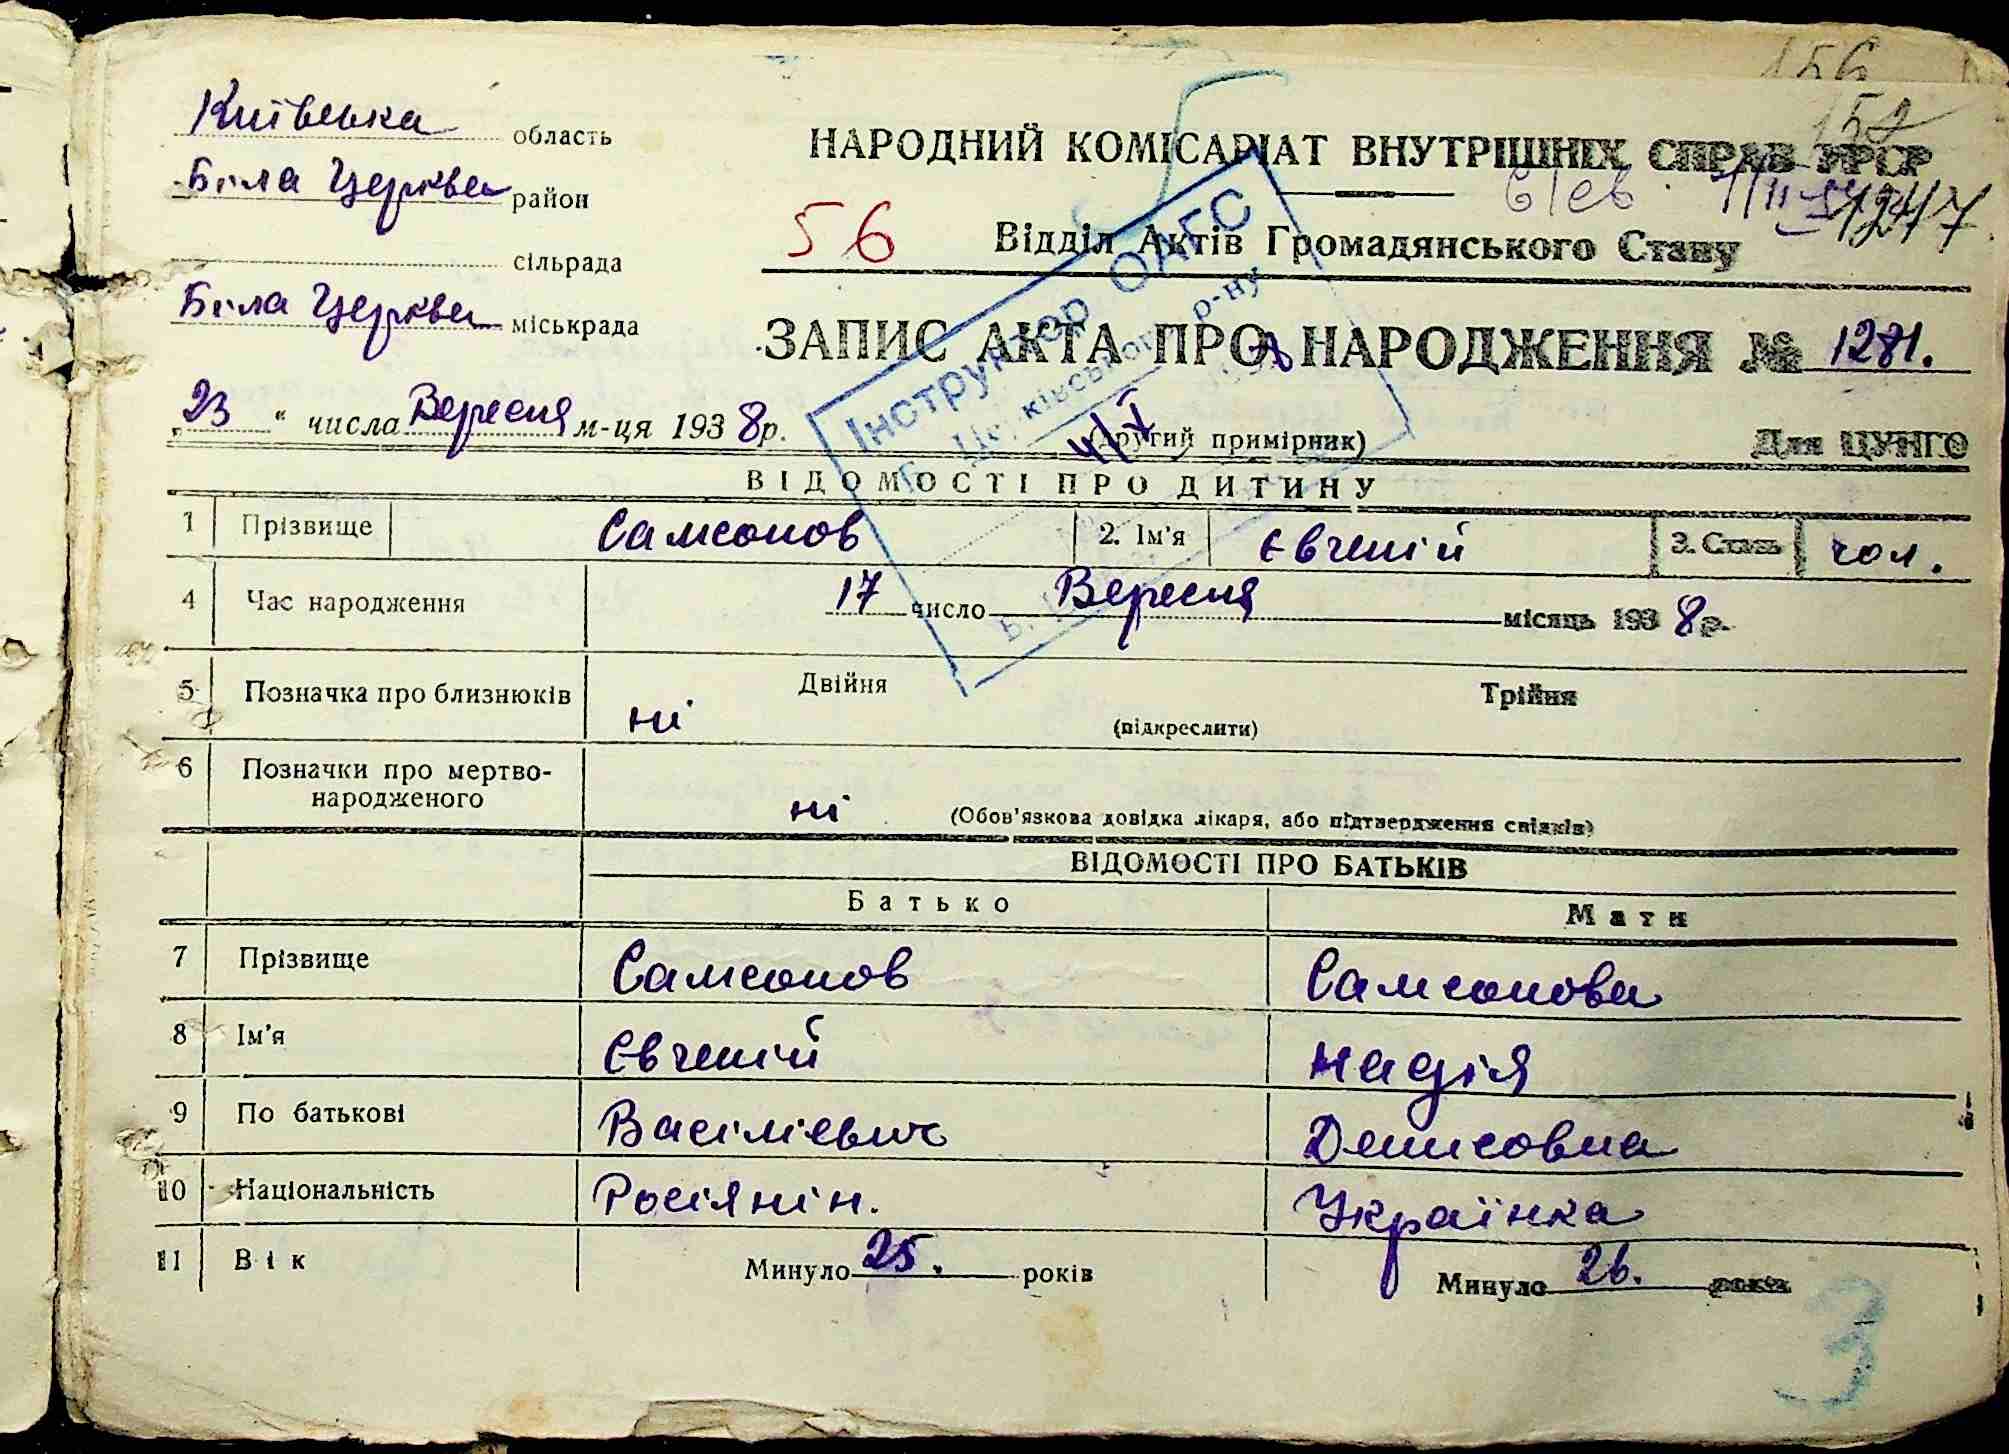 156
152
Київська область
НАРОДНИЙ КОМІСАРІАТ ВНУТРІШНІХ СПРАВ УРСР
Біла Церква район
56
Відділ Актів Громадянського Стану
сільрада
Біла Церква міськрада
ЗАПИС АКТА ПРО НАРОДЖЕННЯ № 1281.
„23" числа Вересня м-ця 1938р.
(другий примірник)
Для ЦУНГО
Інструктор ОАГС
р-ну
ВІДОМОСТІ ПРО ДИТИНУ
1 Прізвище Самсонов 2. Ім'я Євгеній 3. Стать чол.
4 Час народження 17 число Вересня місяць 1938р.
5 Позначка про близнюків ні Двійня Трійня
(підкреслити)
6 Позначки про мертво-
народженого ні (Обов'язкова довідка лікаря, або підтвердження свідків)
ВІДОМОСТІ ПРО БАТЬКІВ
Батько Мати
7 Прізвище Самсонов Самсонова
8 Ім'я Євгеній Надія
9 По батькові Васілієвич Денисовна
10 Національність Росіянін. Українка
11 Вік Минуло 25. років Минуло 26. років
3